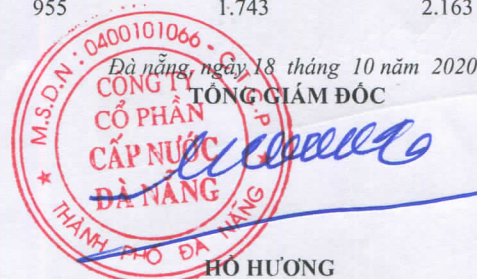 955 1.743 2.163
Đà nẵng, ngày 18 tháng 10 năm 2020
TỔNG GIÁM ĐỐC
M.S.D.N: 0400101066 - C.T.C.P
CÔNG TY
CỔ PHẦN
CẤP NƯỚC
ĐÀ NẴNG
THÀNH PHỐ ĐÀ NẴNG
HỒ HƯƠNG